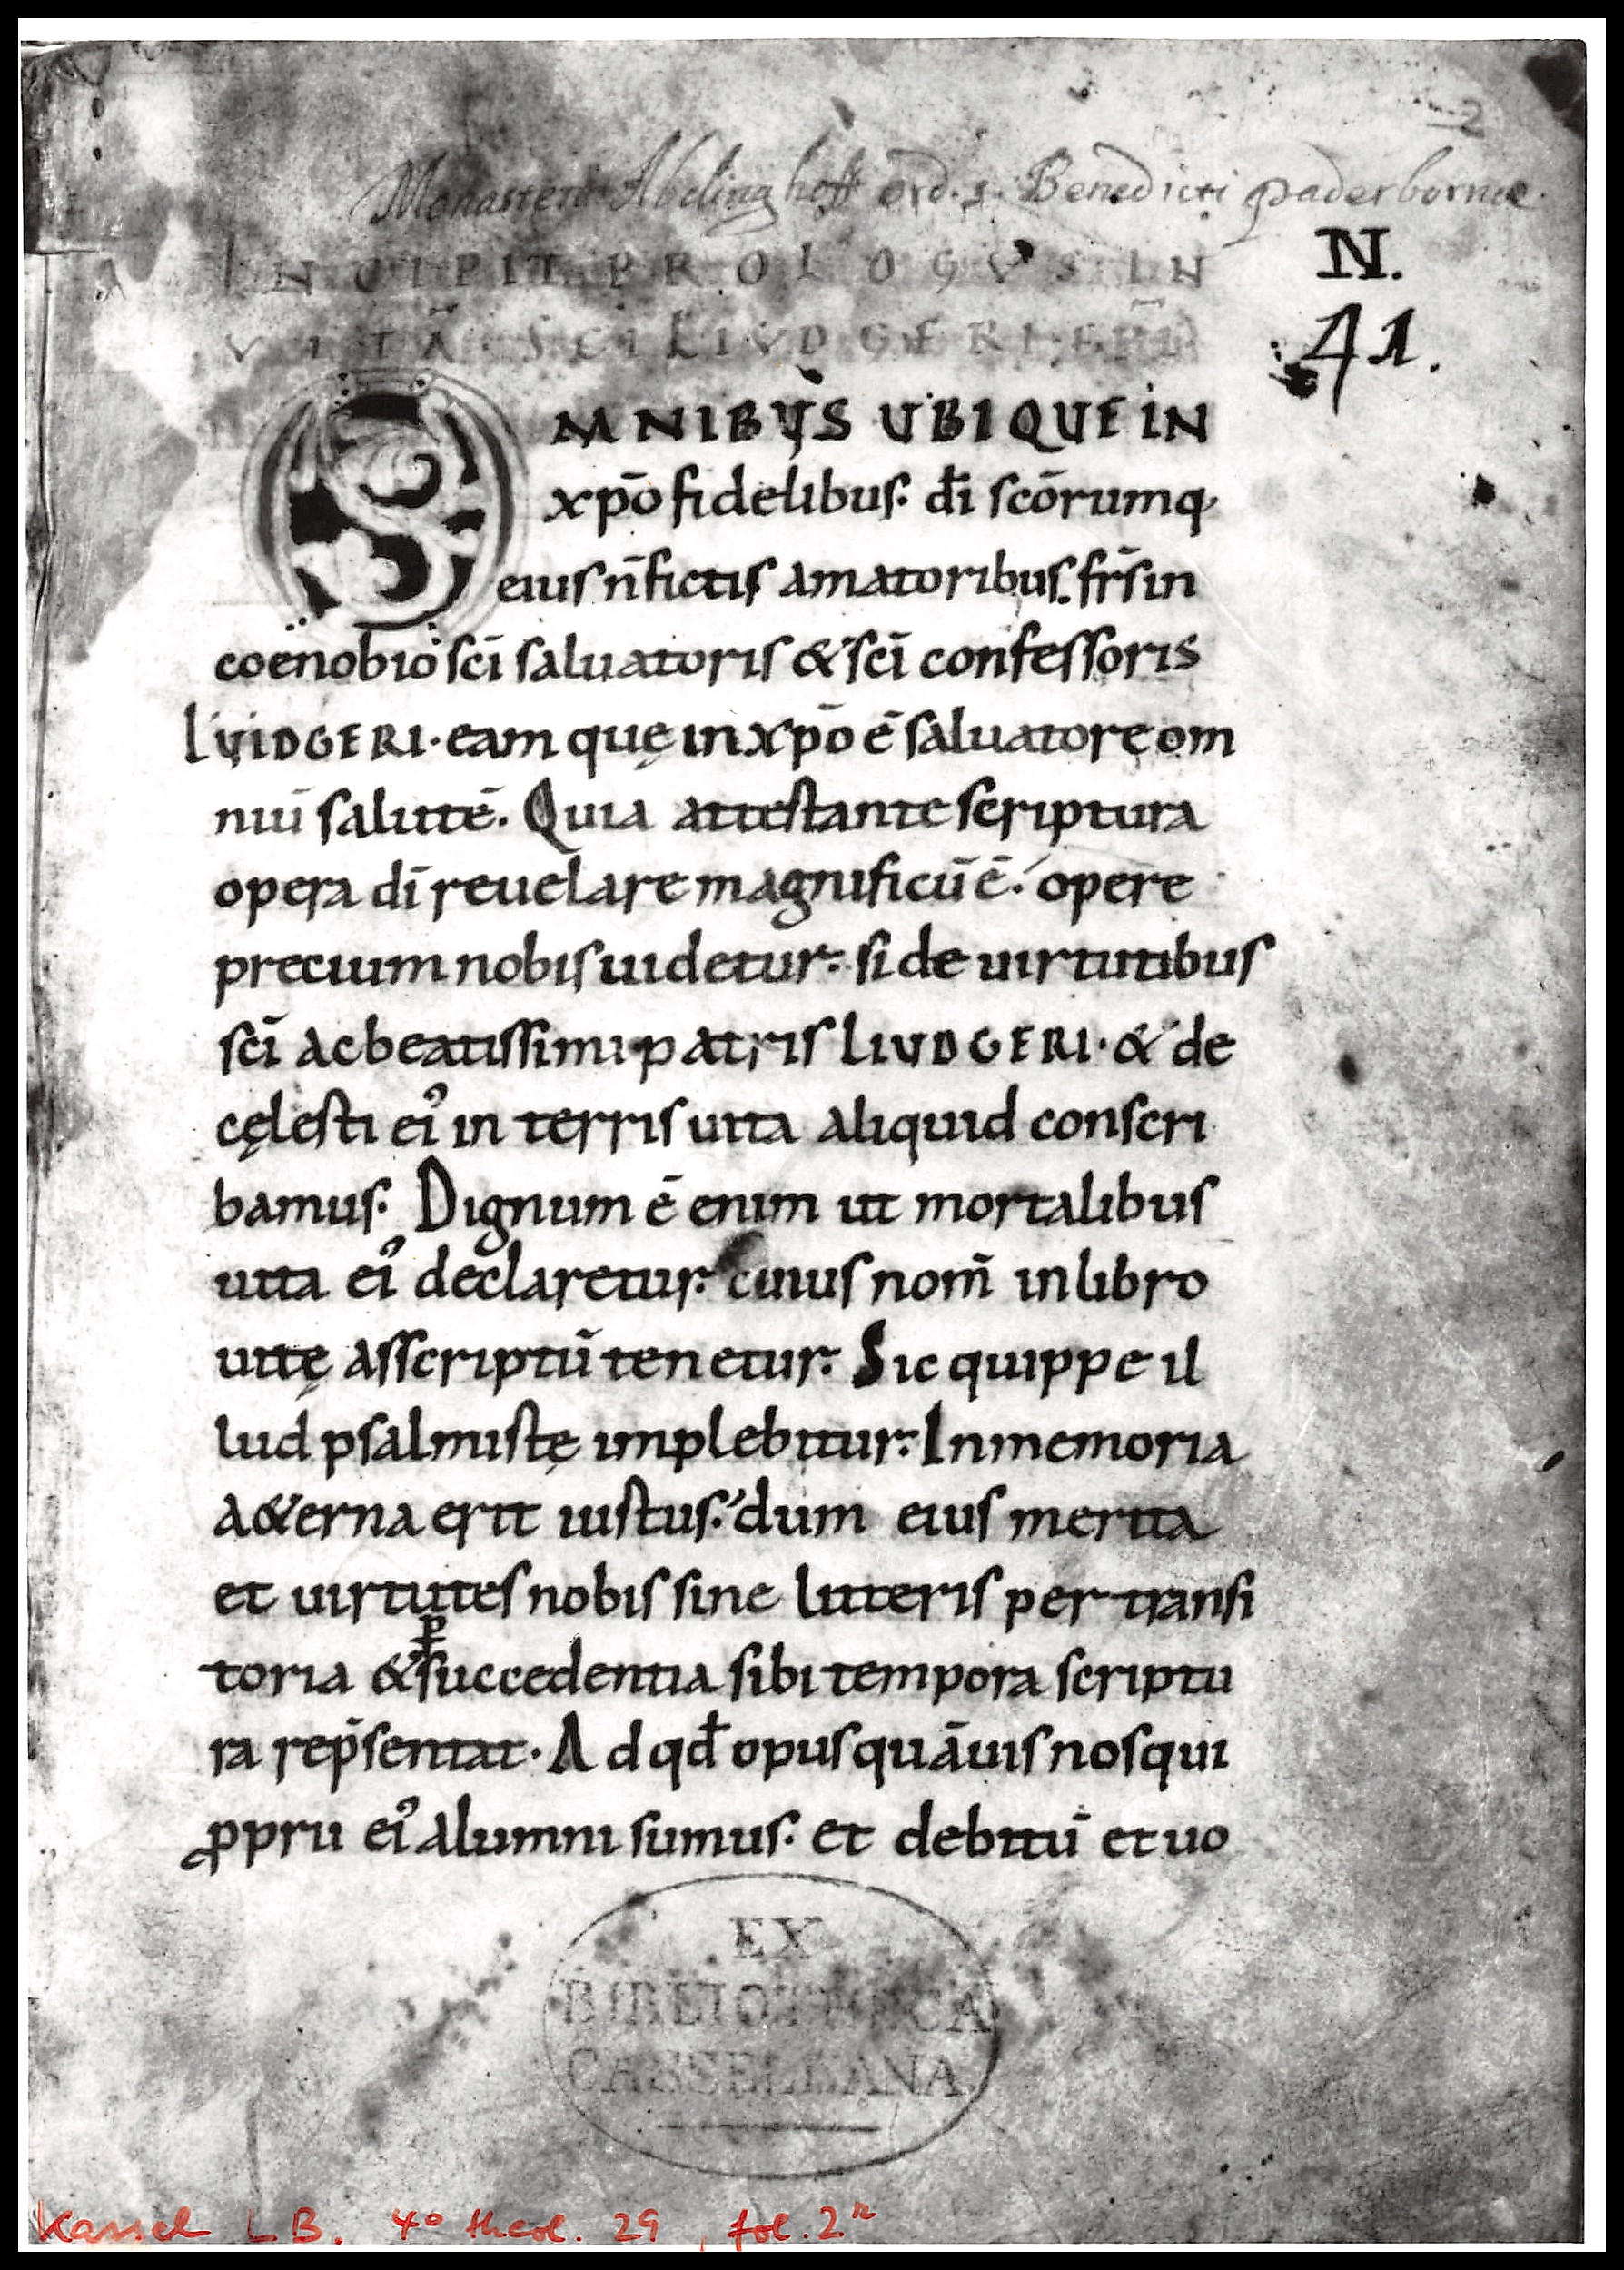 2
Monasterii Abdinghoff ord. s. Benedicti paderbornae.
INCIPIT PROLOGUS IN
N.
VITĀ SC̄I LIVDGERI EP̄I
41.
OMNIBUS UBIQUE IN
xp̄o fidelibus. dī scōrumq;
eius n̄ fictis amatoribus. fr̄s in
coenobio sc̄i saluatoris & sc̄i confessoris
LIVIDGERI. eam quę in xp̄o ē saluatore om
niū salutē. Quia attestante scriptura
opera dī reuelare magnificū ē. opere
precium nobis uidetur. si de uirtutibus
sc̄i ac beatissimi patris LIVDGERI. & de
cęlesti eiꝰ in terris uita aliquid conscri
bamus. Dignum ē enim ut mortalibus
uita eiꝰ declaretur. cuius nom̄ in libro
uitę asscriptū tenetur. Sic quippe il
lud psalmistę implebitur. In memoria
a&erna erit iustus. dum eius merita
et uirtutes nobis sine litteris per transi
toria & ꝑ succedentia sibi tempora scriptu
ra rep̄sentat. Ad qd̄ opus quāuis nos qui
ꝓprii eiꝰ alumni sumus. et debitū et uo
EX
BIBLIOTHECA
CASSELLANA
Kassel LB. 4° theol. 29, fol. 2r